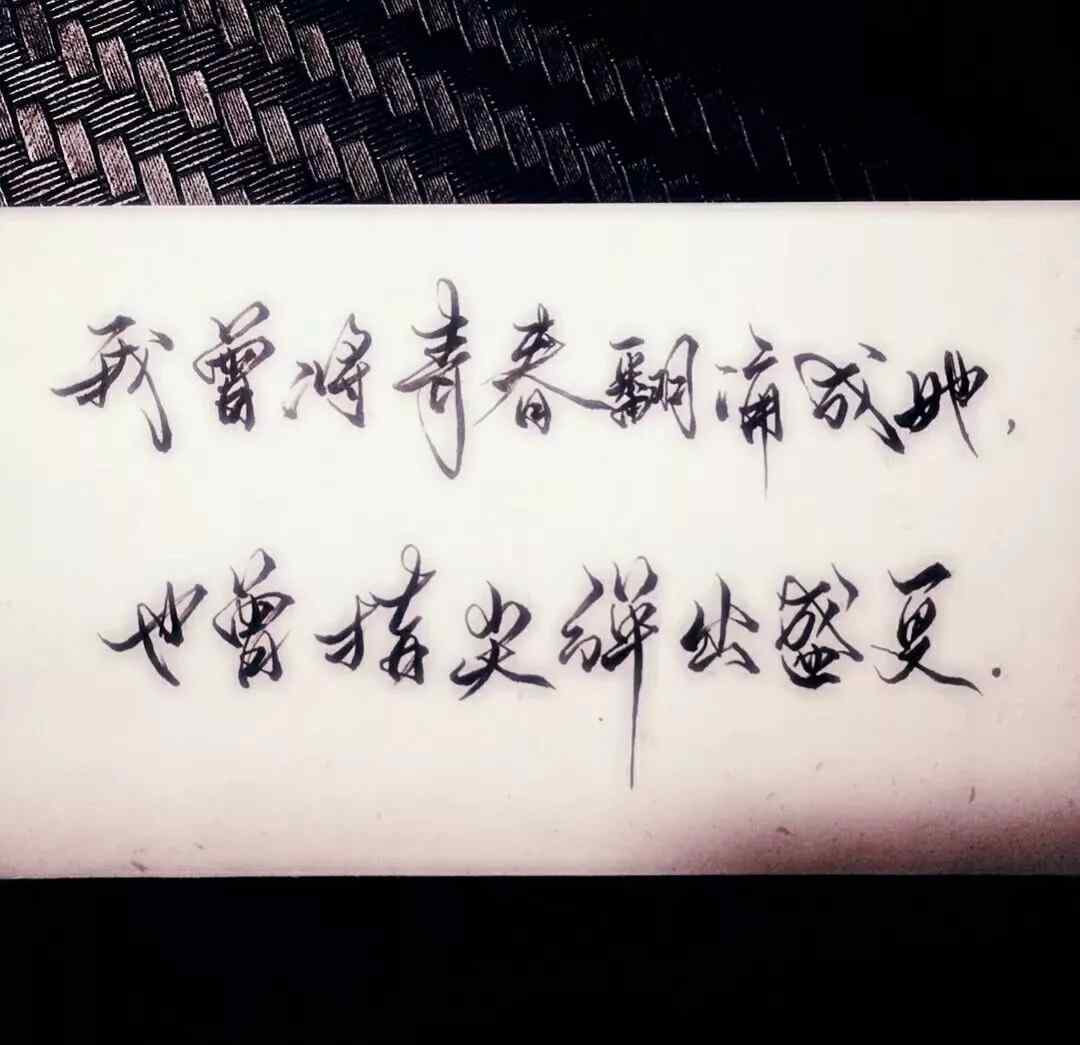 我曾将青春翻涌成她,
也曾指尖弹出盛夏.